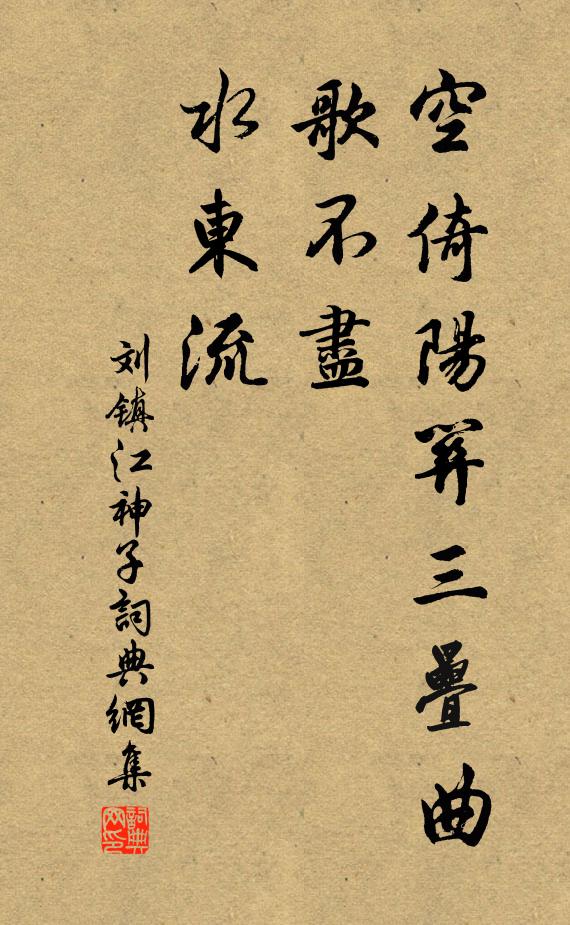 空倚陽關三疊曲
歌不盡
水東流
刘镇江神子詞典網集
詞典网印